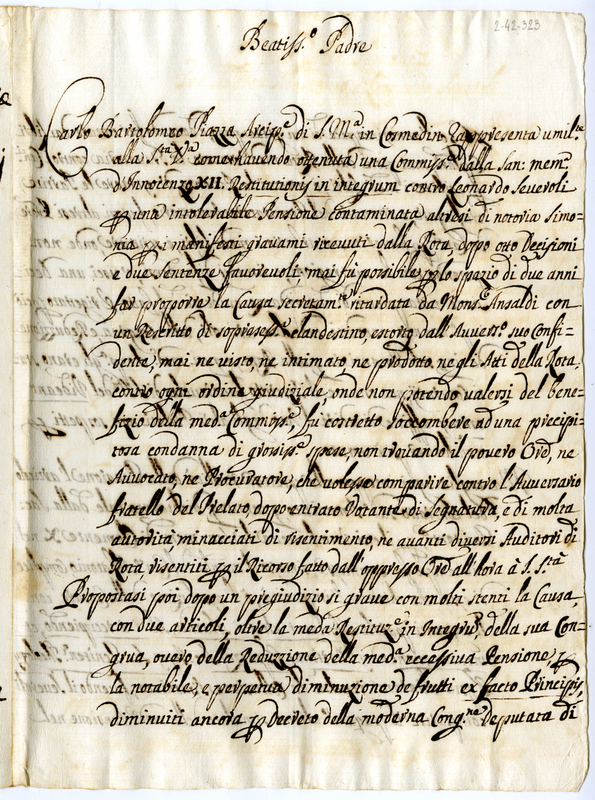 2-42-323
Beatiss.º Padre
Carlo Bartolomeo Piazza Arcip.e di S. M.a in Cosmedin rappresenta umil.te
alla S.tà V.ra come havendo ottenuta una Commiss.ne dalla San: mem.
d'Innocenzo XII. Restitutionis in integrum contro Leonardo Severoli
ꝑ una intolerabile Pensione contaminata altresì di notoria simo=
nia ꝑ i manifesti gravami ricevuti dalla Rota, dopo otto Decisioni
e due Sentenze favorevoli; mai fù possibile ꝑ lo spazio di due anni
far proporre la Causa secretam.te ritardata da Mons.r Ansaldi con
un Rescritto di soprasess.a clandestino, estorto dall'Avvers.o suo Confi=
dente, mai ne visto, ne intimato, ne prodotto, ne gli Atti della Rota,
contro ogni ordine giudiziale, onde non potendo valersi del bene=
fizio della med.a Commiss.e fù costretto soccombere ad una precipi=
tosa condanna di grossiss.e spese, non trovando il povero Ore, ne
Avvocato, ne Procuratore, che volesse comparire contro l'Avversario
fratello del Prelato, dopo entrato Votante di Segnatura, e di molta
autorità, minacciati di risentimento, ne avanti diversi Auditori di
Rota, risentiti ꝑ il Ricorso fatto dall'oppresso Ore all'hora à S. S.tà
Propostasi poi dopo un pregiudizio si grave con molti stenti la Causa,
con due articoli, oltre la meda Restituz.e in Integru, della sua Con=
grua, overo della Reduzzione della med.a eccessiva Pensione ꝑ
la notabile, e perpetua diminuzione de frutti ex facto Principis,
diminuiti ancora ꝑ Decreto della moderna Cong.ne Deputata di